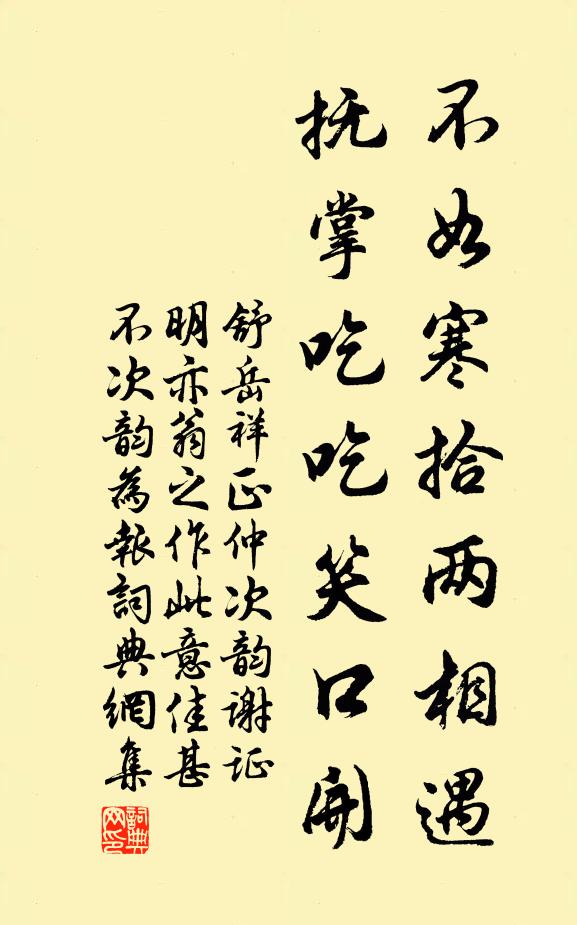 不如寒拾两相遇
抚掌吃吃笑口開
舒岳祥正仲次韵谢证
明亦翁之作此意佳甚
不次韵為報詞典網集
詞典
网印